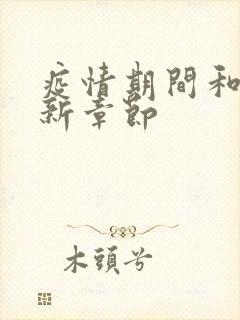 疫情期間和
新章節
木頭兮